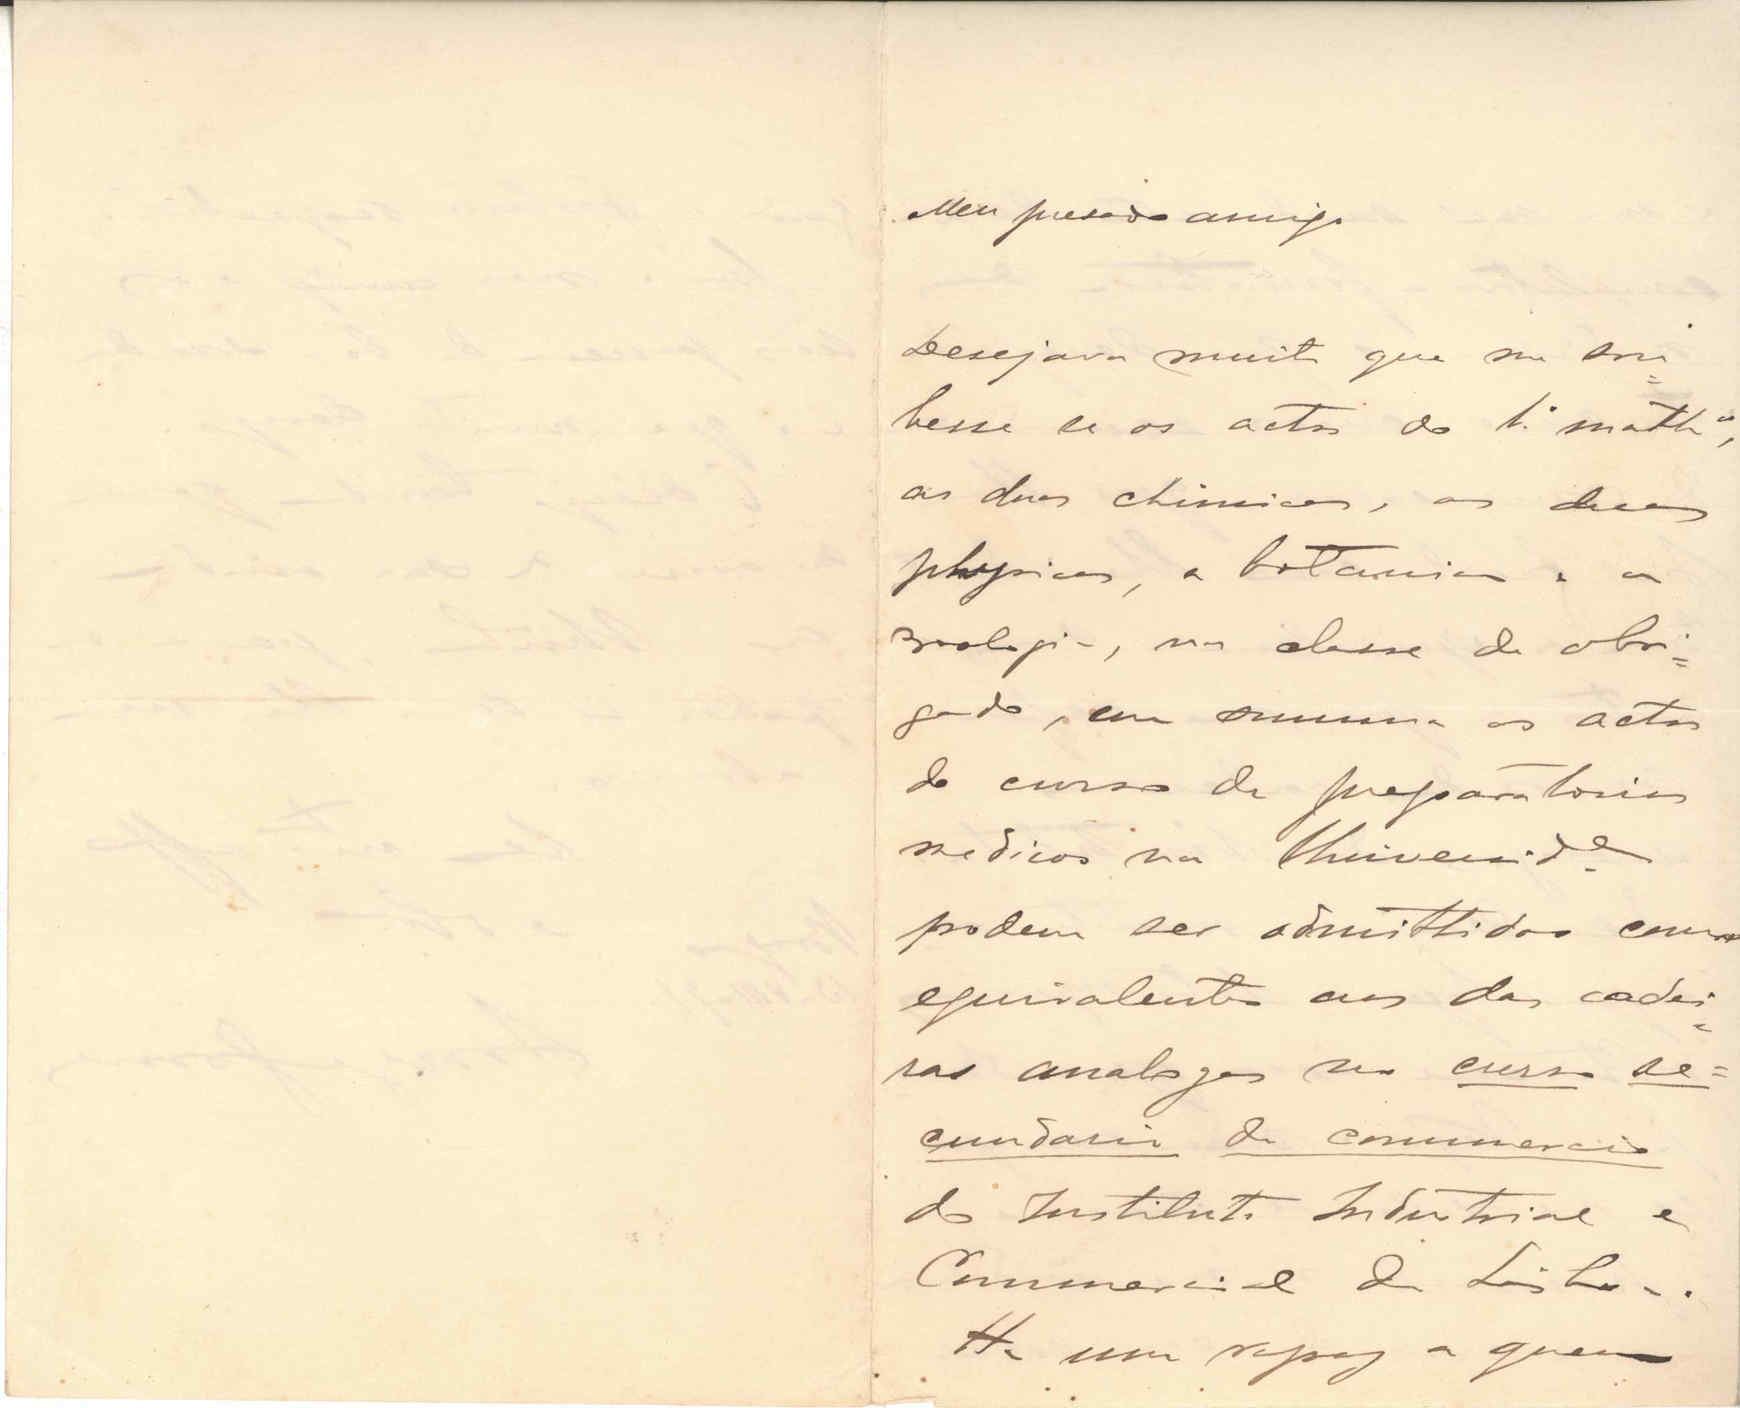 Meu presado amigo
Desejava muito que me sou=
besse se os actos do 1.º math.ª,
as duas chimicas, as duas
physicas, a botanica e a
zoologia, na classe de obri=
gado, em summa os actos
do curso de preparatorios
medicos na Universid.e
podem ser admittidos como
equivalentes aos das cadei=
ras analogas no curso se=
cundario de commercio
do Instituto Industrial e
Commercial de Lisboa.
Ha um rapaz a quem